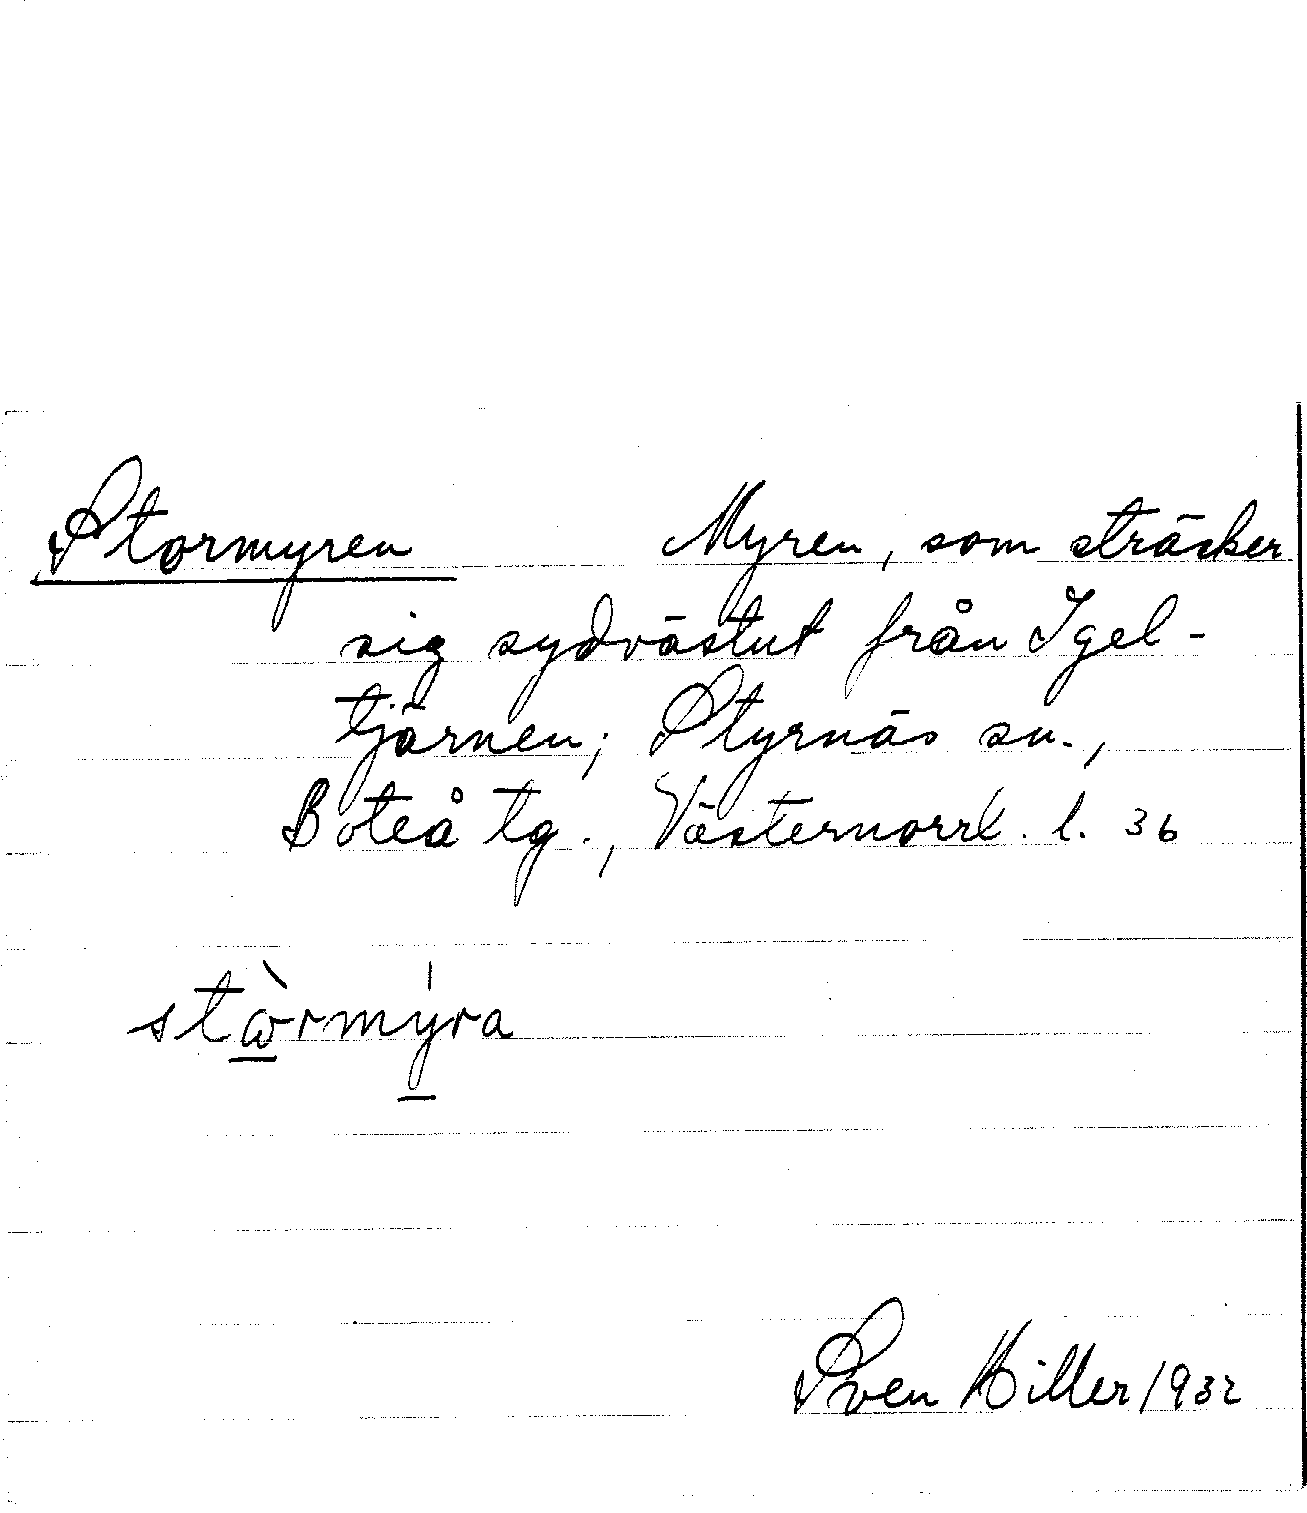 Stormyren Myren, som sträcker
sig sydvästut från Igel-
tjärnen; Styrnäs sn.,
Boteå tg., Västernorrl. l. 36
stὼrmýra
Sven Hiller 1932